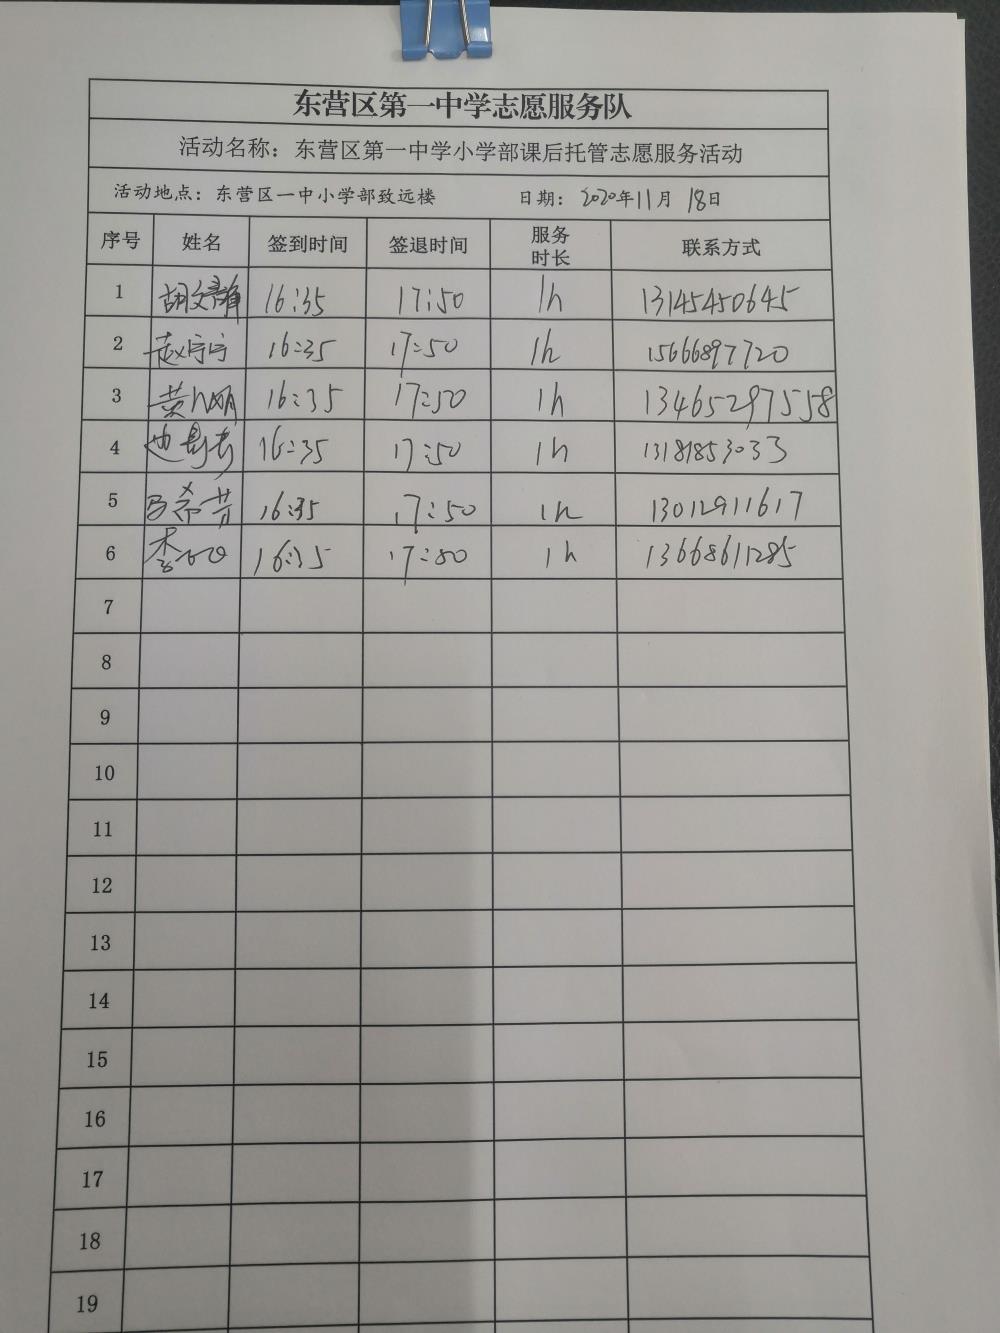 东营区第一中学志愿服务队
活动名称：东营区第一中学小学部课后托管志愿服务活动
活动地点：东营区一中小学部致远楼 日期：2020年11月18日
序号 姓名 签到时间 签退时间 服务时长 联系方式
1 胡文 16:35 17:50 1h 13145450645
2 赵宁宁 16:35 17:50 1h 15666897720
3 黄 16:35 17:50 1h 13465297558
4 16:35 17:50 1h 13181853033
5 马希芳 16:35 17:50 1h 13012911617
6 李 16:35 17:50 1h 13668611285
7
8
9
10
11
12
13
14
15
16
17
18
19